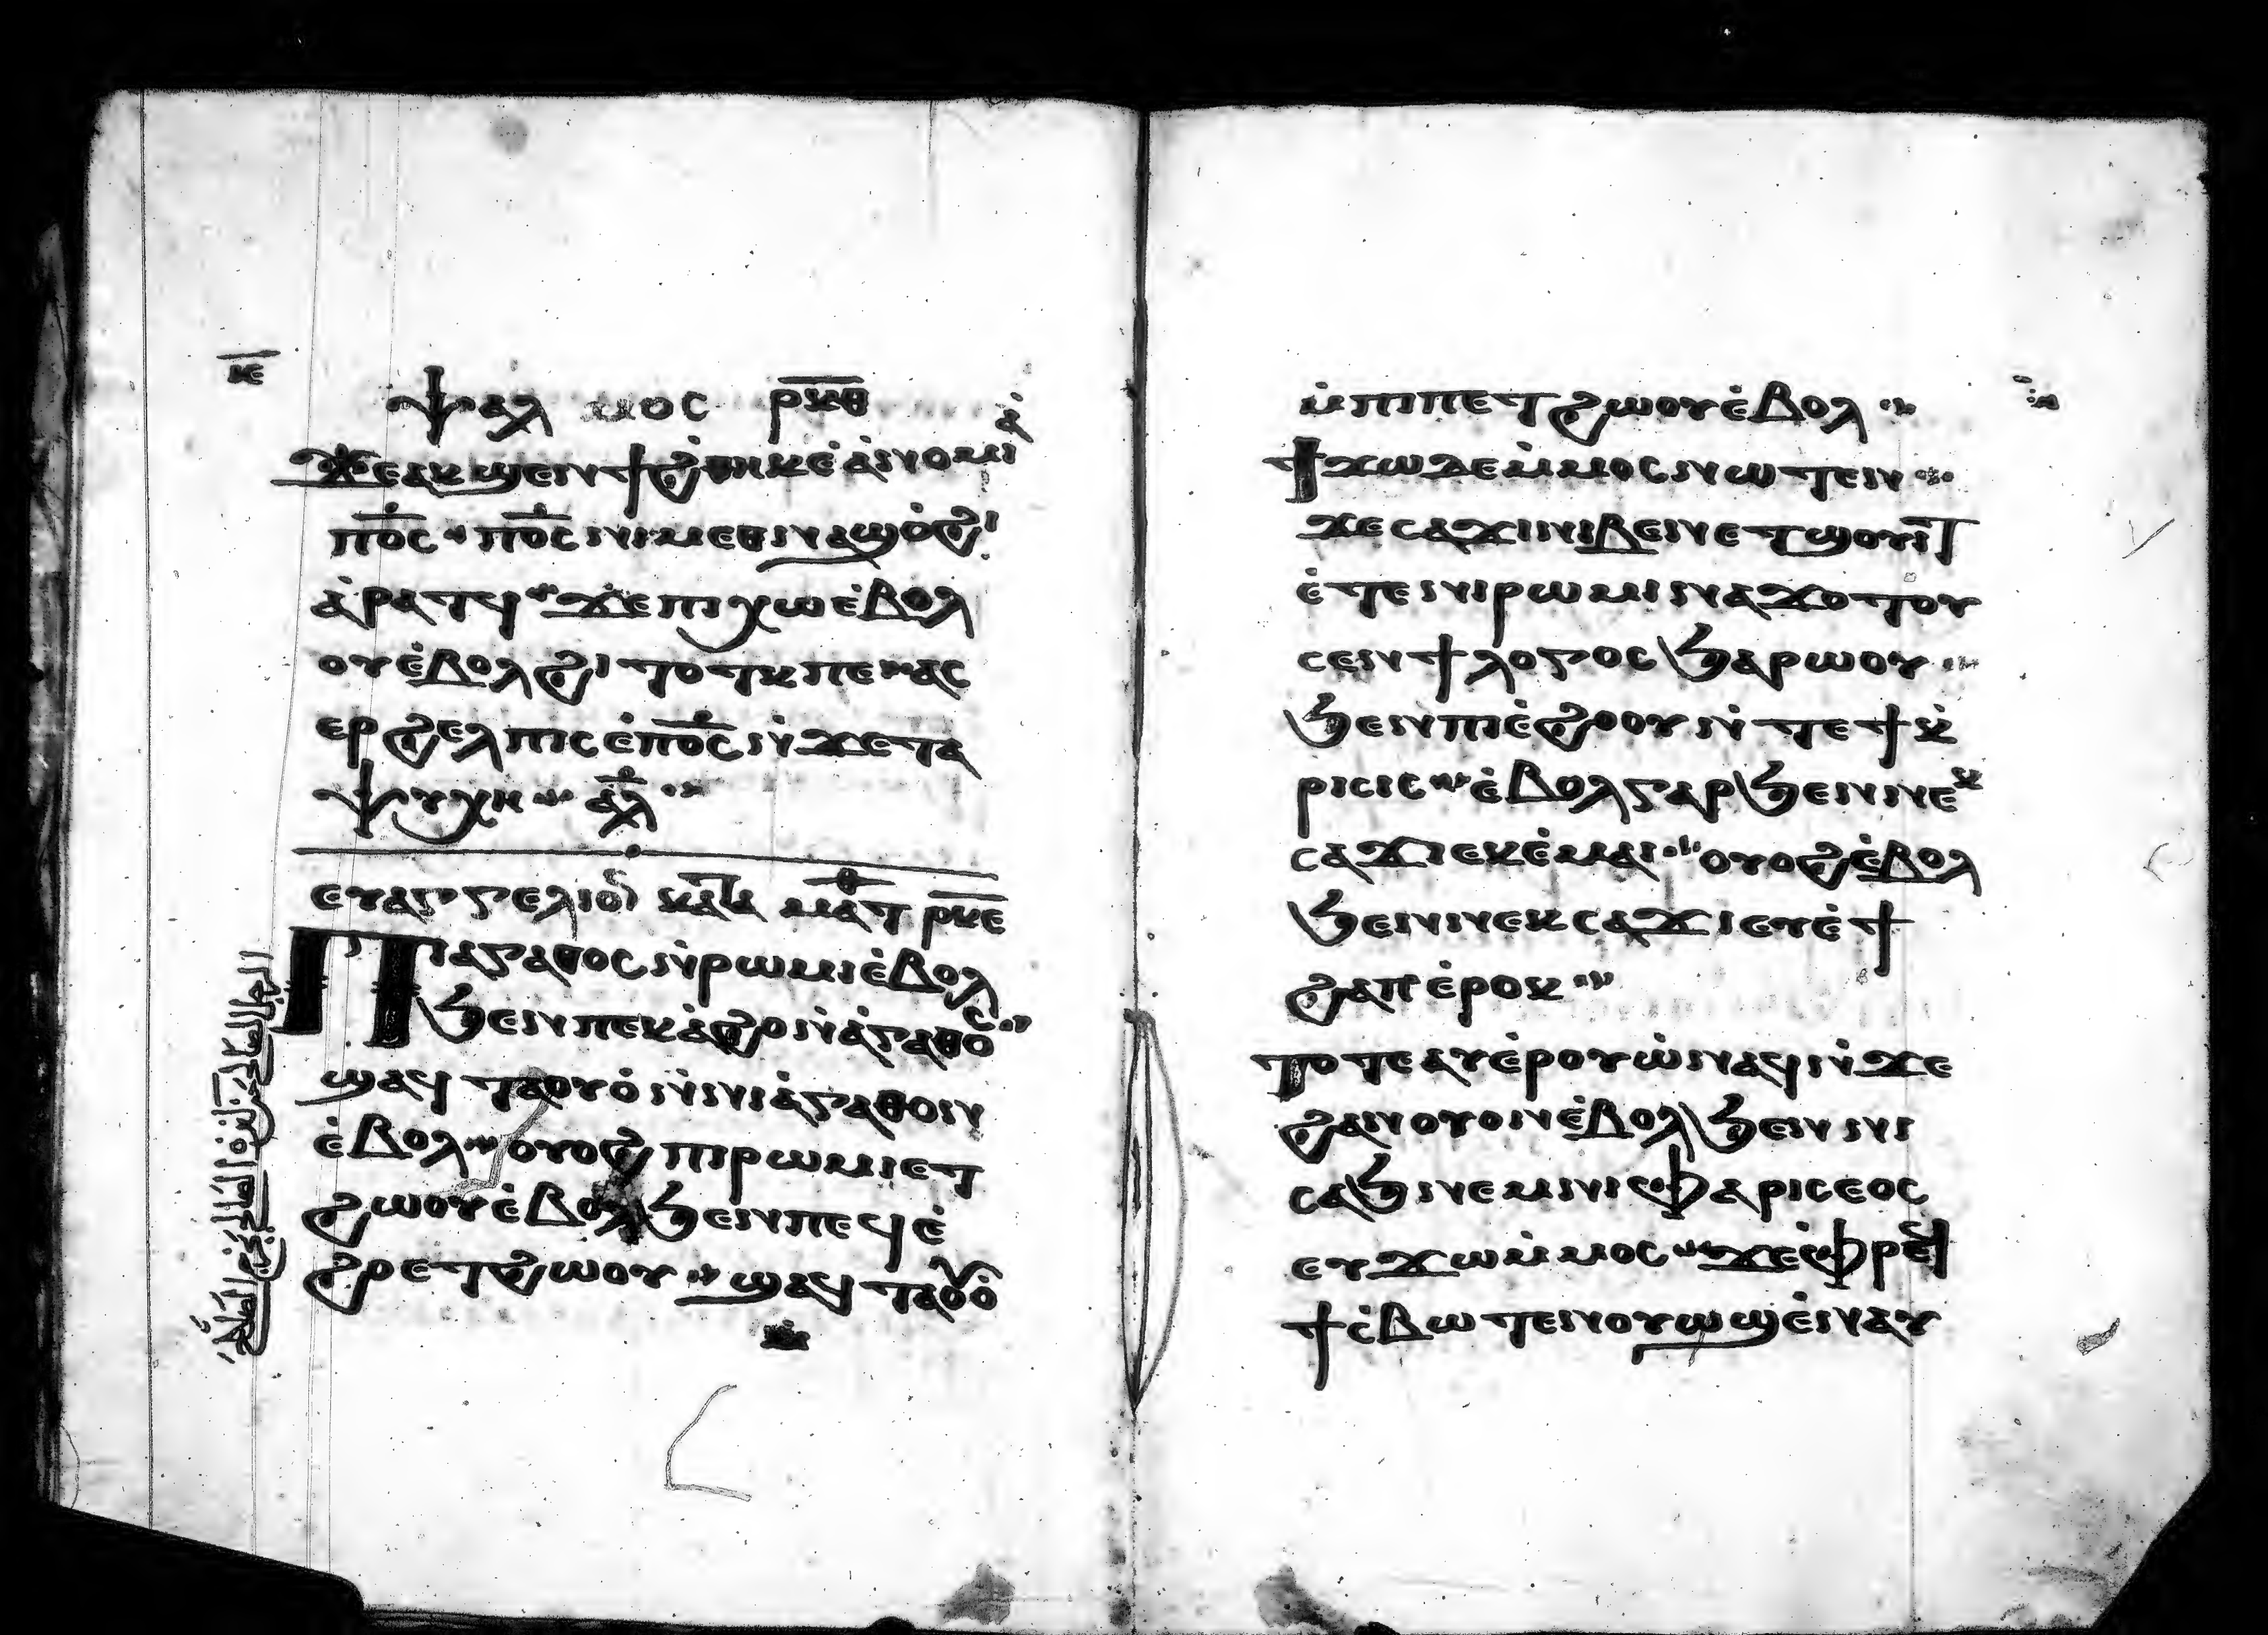 ⲕ̅ⲉ̅
ⲯⲁⲗⲙⲟⲥ ⲣ̅ⲕ̅ⲑ̅
ϫⲉⲁⲕϣⲉⲛϯϩ̇ⲑⲏⲕⲉ̀ⲁ̀ⲛⲟⲙⲓⲁ̀
ⲡⲟ̅ⲥ ⲡⲟ̅ⲥ ⲛⲓⲙⲉⲑⲛⲁϣⲟ̀ϩⲓ
ⲁ̀ⲣⲁⲧϥ ϫⲉⲡⲓⲭⲱⲉ̀ⲃⲟⲗ
ⲟⲩⲉ̀ⲃⲟⲗϩⲓⲧⲟⲧⲕⲡⲉ ⲁⲥ
ⲉⲣϩⲉⲗⲡⲓⲥⲉ̀ⲡⲟ̅ⲥⲛ̀ϫⲉⲧⲁ
ⲯⲩⲭⲏ ⲁ̅ⲗ
ⲉⲩⲁⲅⲅⲉⲗⲓⲟⲛ ⲕⲁⲧⲁ ⲙⲁⲧ ⲣ̅ⲕ̅ⲉ̅
ⲡⲓⲁⲅⲁⲑⲟⲥⲛ̀ⲣⲱⲙⲓⲉ̀ⲃⲟⲗ
ϧⲉⲛⲡⲉⲕⲁ̀ϩⲟⲛ̀ⲁ̀ⲅⲁⲑⲟⲥ
ϣⲁϥⲧⲁⲟⲩⲟ̀ⲛ̀ⲛⲓⲁ̀ⲅⲁⲑⲟⲛ
ⲉ̀ⲃⲟⲗ ⲟⲩⲟϩⲡⲓⲣⲱⲙⲓⲉⲧ
ϩⲱⲟⲩⲉ̀ⲃⲟⲗϧⲉⲛⲡⲉϥⲉ̀
ϩⲣⲉⲧϩⲱⲟⲩ ϣⲁϥⲧⲁⲟⲩⲟ̀
ⲙ̀ⲡⲓⲡⲉⲧϩⲱⲟⲩⲉ̀ⲃⲟⲗ
ϯϫⲱⲇⲉⲙ̀ⲙⲟⲥⲛⲱⲧⲉⲛ
ϫⲉⲥⲁϫⲓⲛⲓⲃⲉⲛⲉⲧϣⲟⲩⲓⲧ
ⲉ̀ⲧⲉⲛⲓⲣⲱⲙⲓⲛⲁϫⲟⲧⲟⲩ
ⲥⲉⲛϯⲗⲟⲅⲟⲥϧⲁⲣⲱⲟⲩ
ϧⲉⲛⲡⲓⲉ̀ϩⲟⲟⲩⲛ̀ⲧⲉϯⲕ̀
ⲣⲓⲥⲓⲥ ⲉ̀ⲃⲟⲗⲅⲁⲣϧⲉⲛⲛⲉⲕ
ⲥⲁϫⲓⲉⲕⲉ̀ⲙⲁⲓ ⲟⲩⲟϩⲉ̀ⲃⲟⲗ
ϧⲉⲛⲛⲉⲕⲥⲁϫⲓⲉⲩⲉ̀ϯ
ϩⲁⲡⲉ̀ⲣⲟⲕ
ⲧⲟⲧⲉⲁⲩⲉ̀ⲣⲟⲩⲱ̀ⲛⲁϥⲛ̀ϫⲉ
ϩⲁⲛⲟⲩⲟⲛⲉ̀ⲃⲟⲗϧⲉⲛⲛⲓ
ⲥⲁϧⲛⲉⲙⲛⲓⲫⲁⲣⲓⲥⲉⲟⲥ
ⲉⲩϫⲱⲙ̀ⲙⲟⲥ ϫⲉⲫ̀ⲣⲉϥ
ϯⲥ̀ⲃⲱⲧⲉⲛⲟⲩⲱϣⲉ̀ⲛⲁⲩ